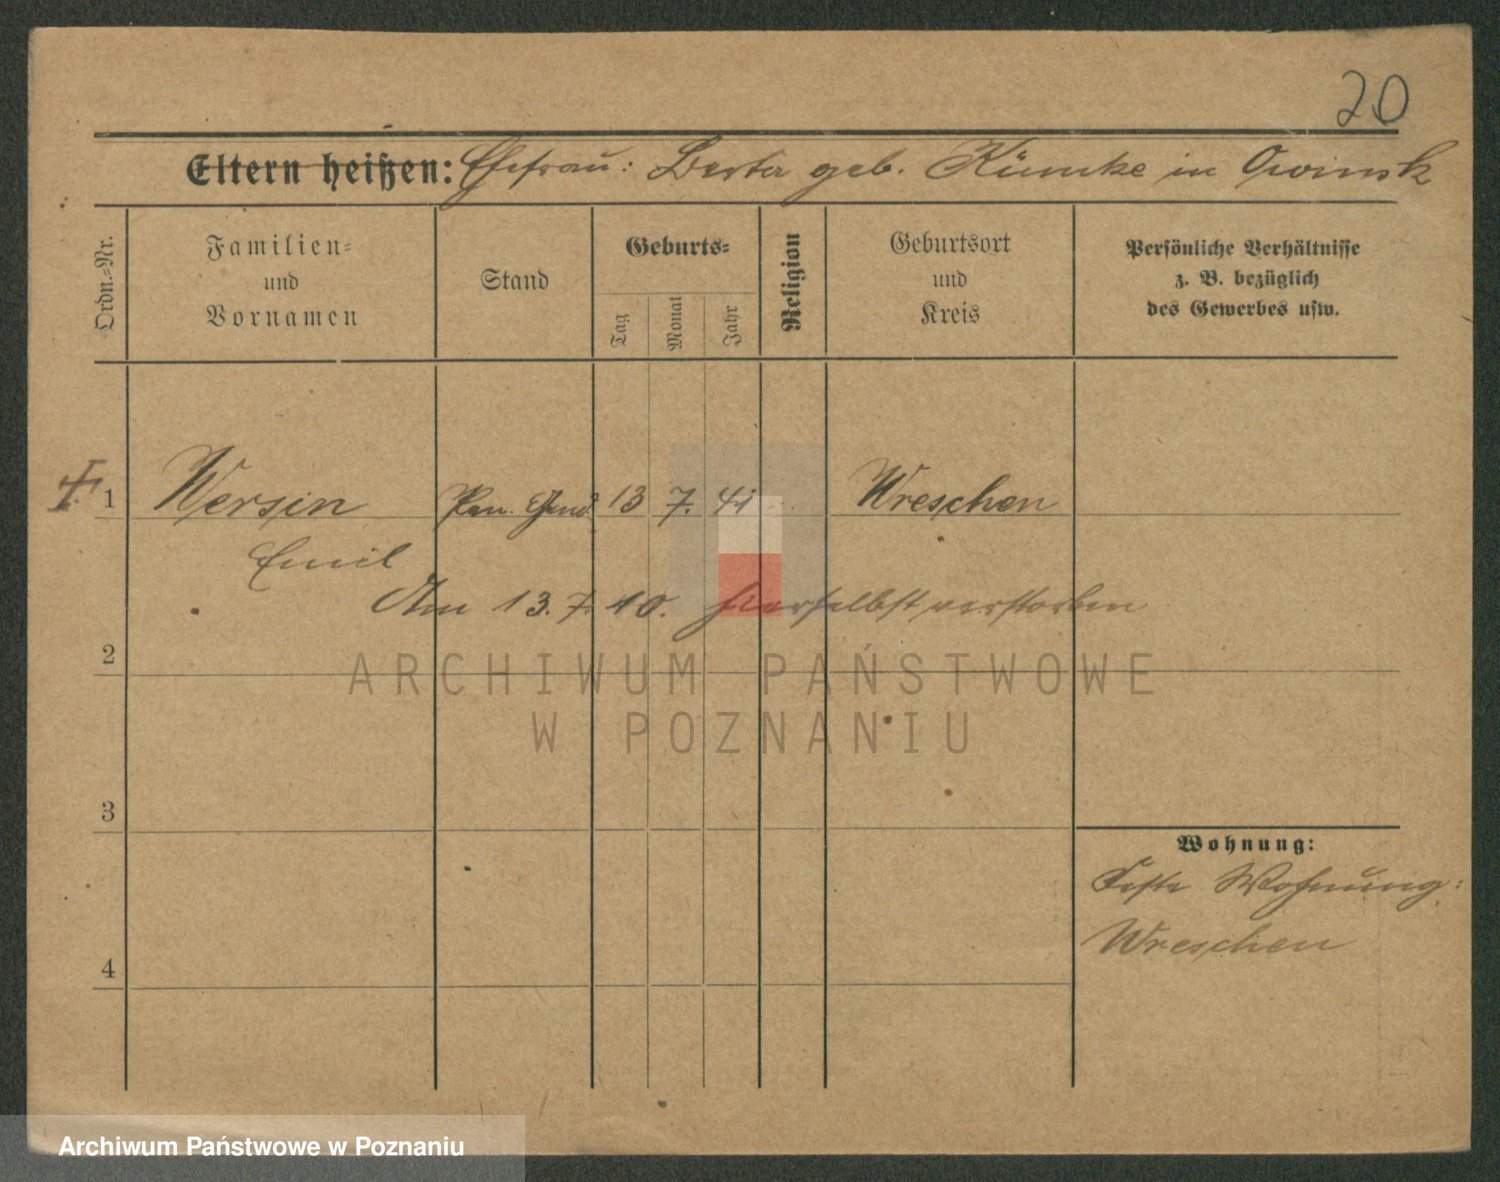 20
Eltern heißen: Ehefrau: Berta geb. Kümke in Owinsk
Ordn.=Nr.
Familien=
und
Vornamen
Stand
Geburts=
Tag
Monat
Jahr
Religion
Geburtsort
und
Kreis
Persönliche Verhältnisse
z. B. bezüglich
des Gewerbes usw.
1 Wersin Pen. Gend. 13 7. 41 Wreschen
Emil
Am 13. 7. 10. hierselbst verstorben
2
ARCHIWUM PAŃSTWOWE
W POZNANIU
3
Wohnung:
Feste Wohnung:
Wreschen
4
Archiwum Państwowe w Poznaniu